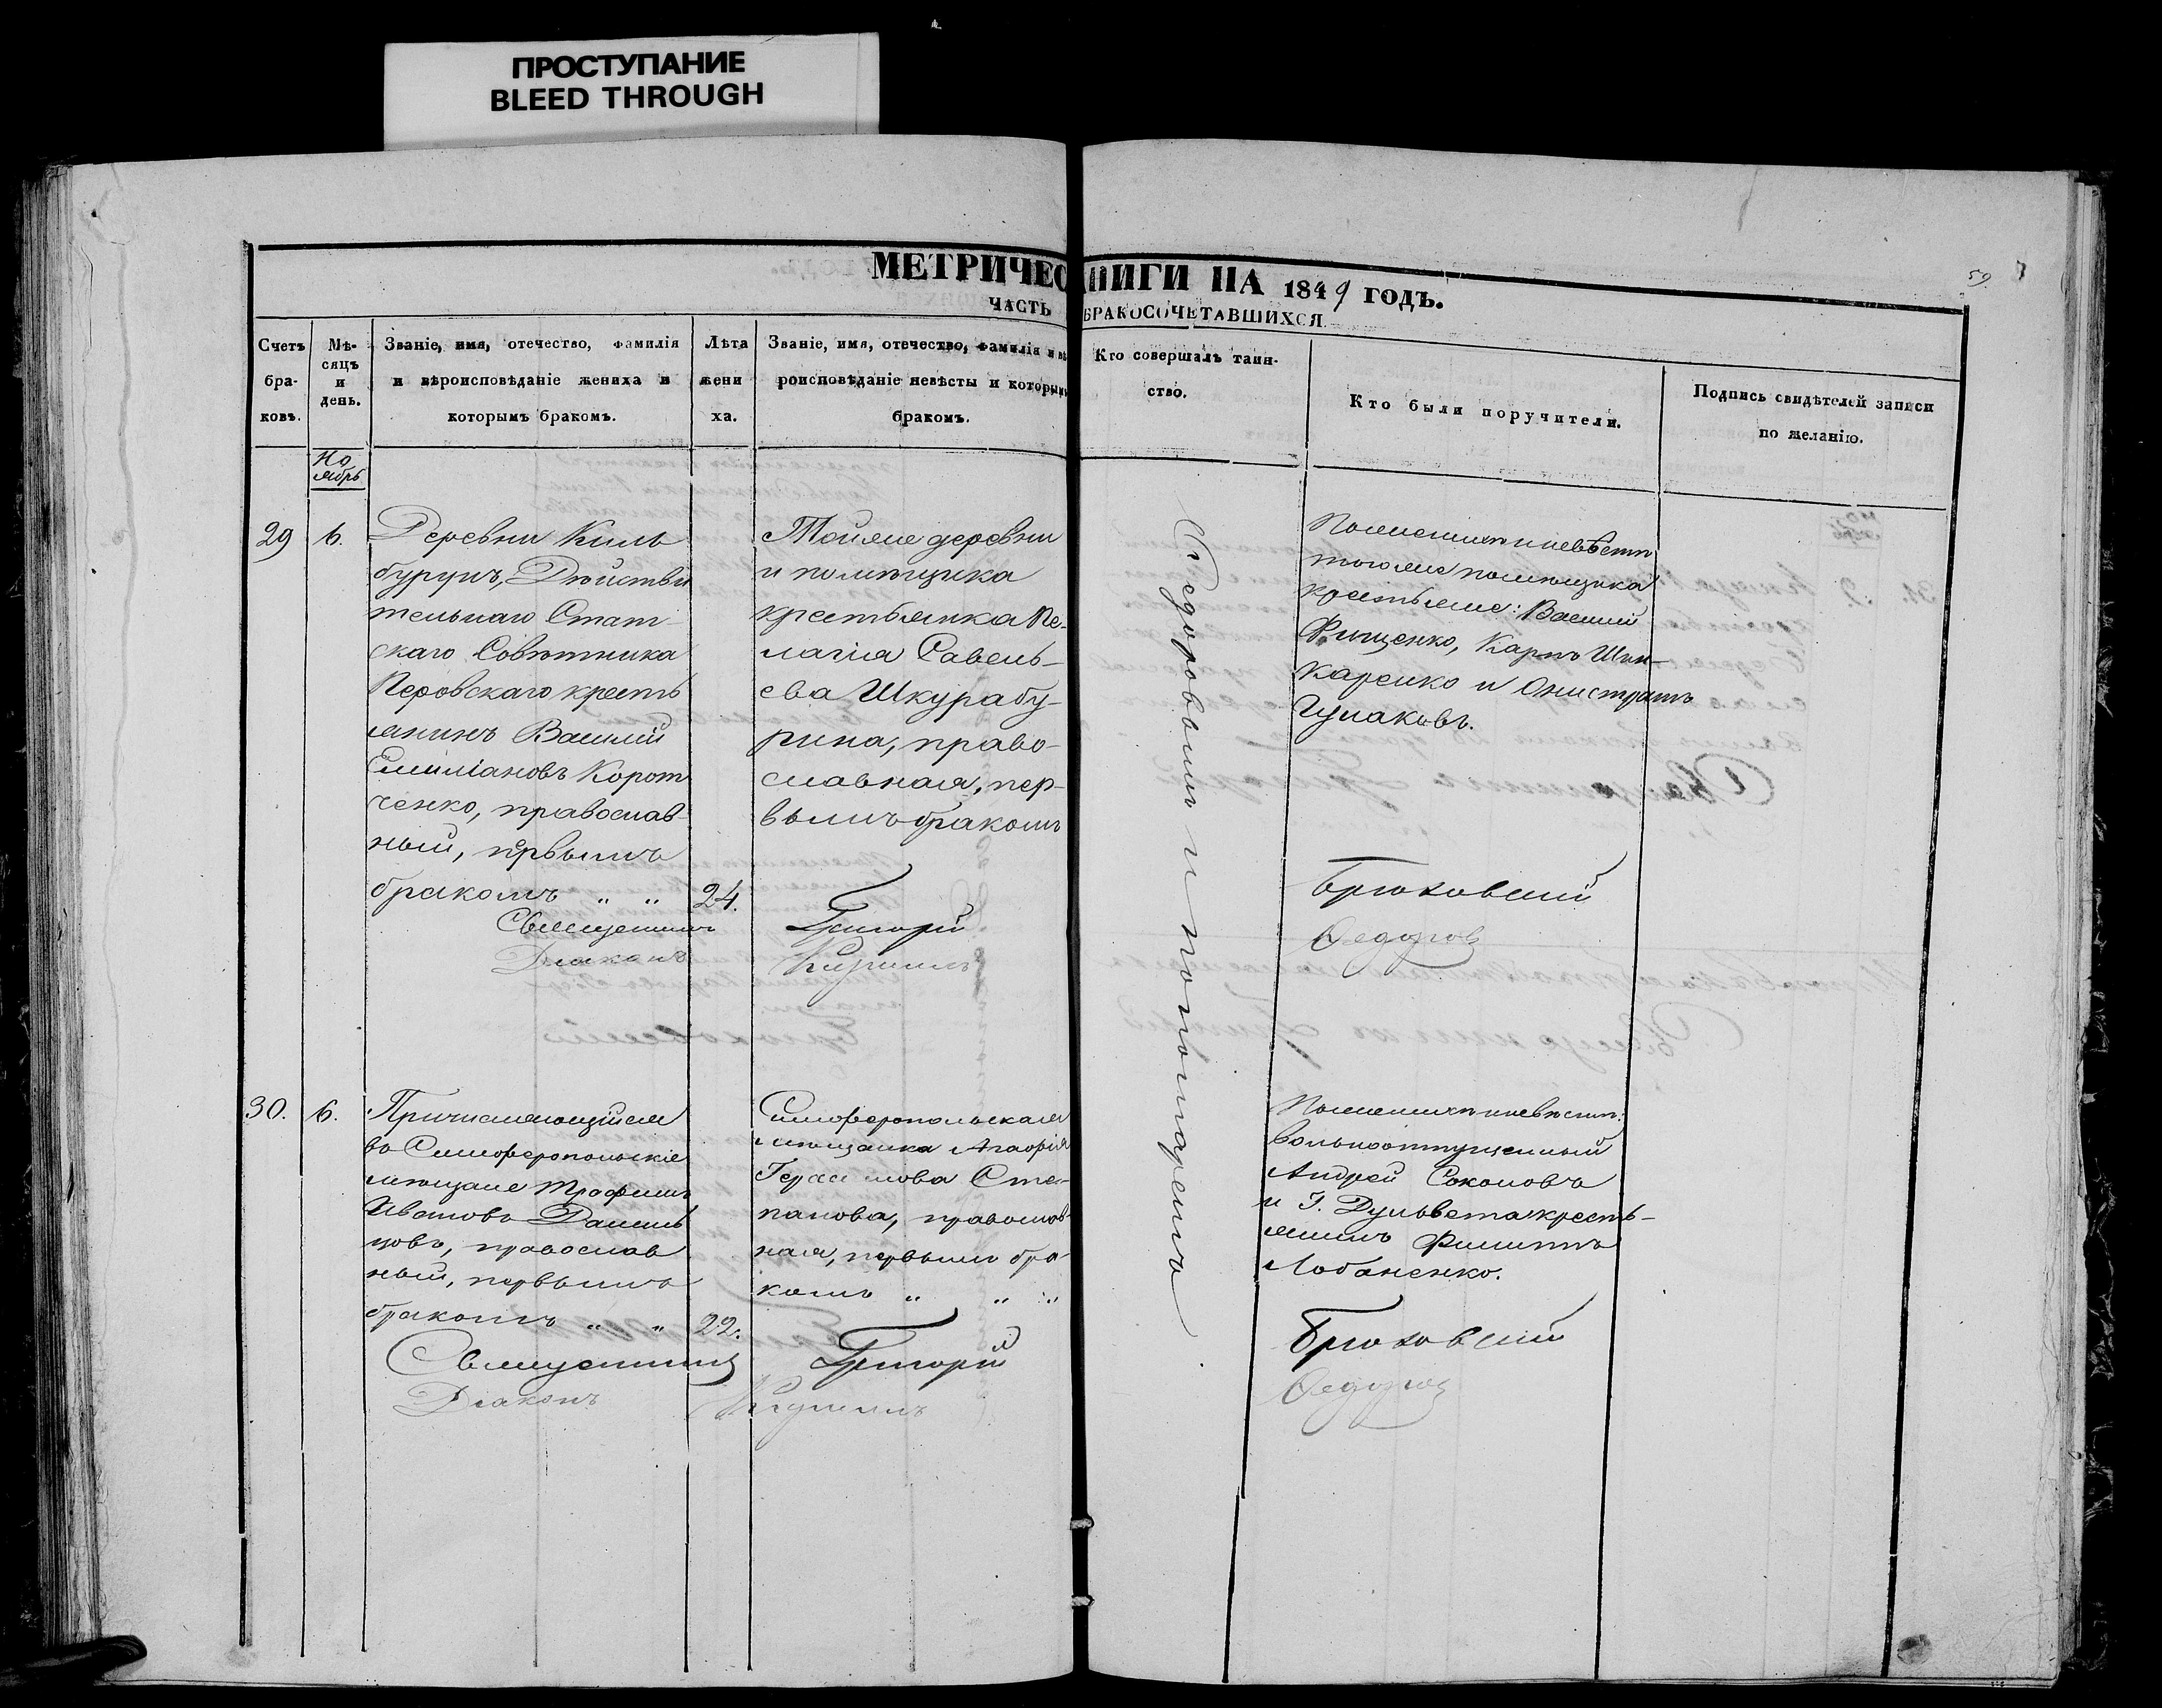 ПРОСТУПАНИЕ
BLEED THROUGH
59
МЕТРИЧЕС НИГИ НА 1849 ГОДЪ.
ЧАСТЬ БРАКОСОЧЕТАВШИХСЯ.
Счетъ бра- ковъ.
Мѣ- сяцъ и день.
Званіе, имя, отечество, фамилія
и вѣроисповѣданіе жениха и
которымъ бракомъ.
Лѣта жени ха.
Званіе, имя, отечество, фамилія и вѣ
роисповѣданіе невѣсты и которымъ
бракомъ.
Кто совершалъ таин-
ство.
Кто были поручители.
Подпись свидѣтелей записи
по желанію.
Но
ябрь
29
6.
Деревни Киль
бурунъ, Дѣйстви
тельнаго Стат-
скаго Совѣтника
Перовскаго кресть
янинъ Василій
Емиліановъ Корот
ченко, православ-
ный, первымъ
бракомъ „ „
24.
Тойже деревни
и помѣщика
крестьянка Пе-
лагія Савель-
ева Шкурабу-
рина, право-
славная, пер-
вымъ бракомъ
Федоровымъ и пономаремъ
По женихѣ и невѣстѣ
тогоже помѣщика
крестьяне: Василій
Фищенко, Карпъ Шин-
каренко и Онистратъ
Гулаковъ.
Священникъ Григорій Брюховскій
Діаконъ Кириллъ Федоровъ
30.
6.
Причисляющійся
въ Симферопольскіе
мѣщане Трофимъ
Ивановъ Даниль
цовъ, православ
ный, первымъ
бракомъ „ „
22.
Симферопольская
мѣщанка Агафія
Герасимова Сте-
панова, православ-
ная, первымъ бра-
комъ „ „ „
По женихѣ и невѣстѣ:
вольноотпущенный
Андрей Соколовъ
и Г. Дульвета кресть-
янинъ Филиппъ
Лобаненко.
Священникъ Григорій Брюховскій
Діаконъ Кириллъ Федоровъ